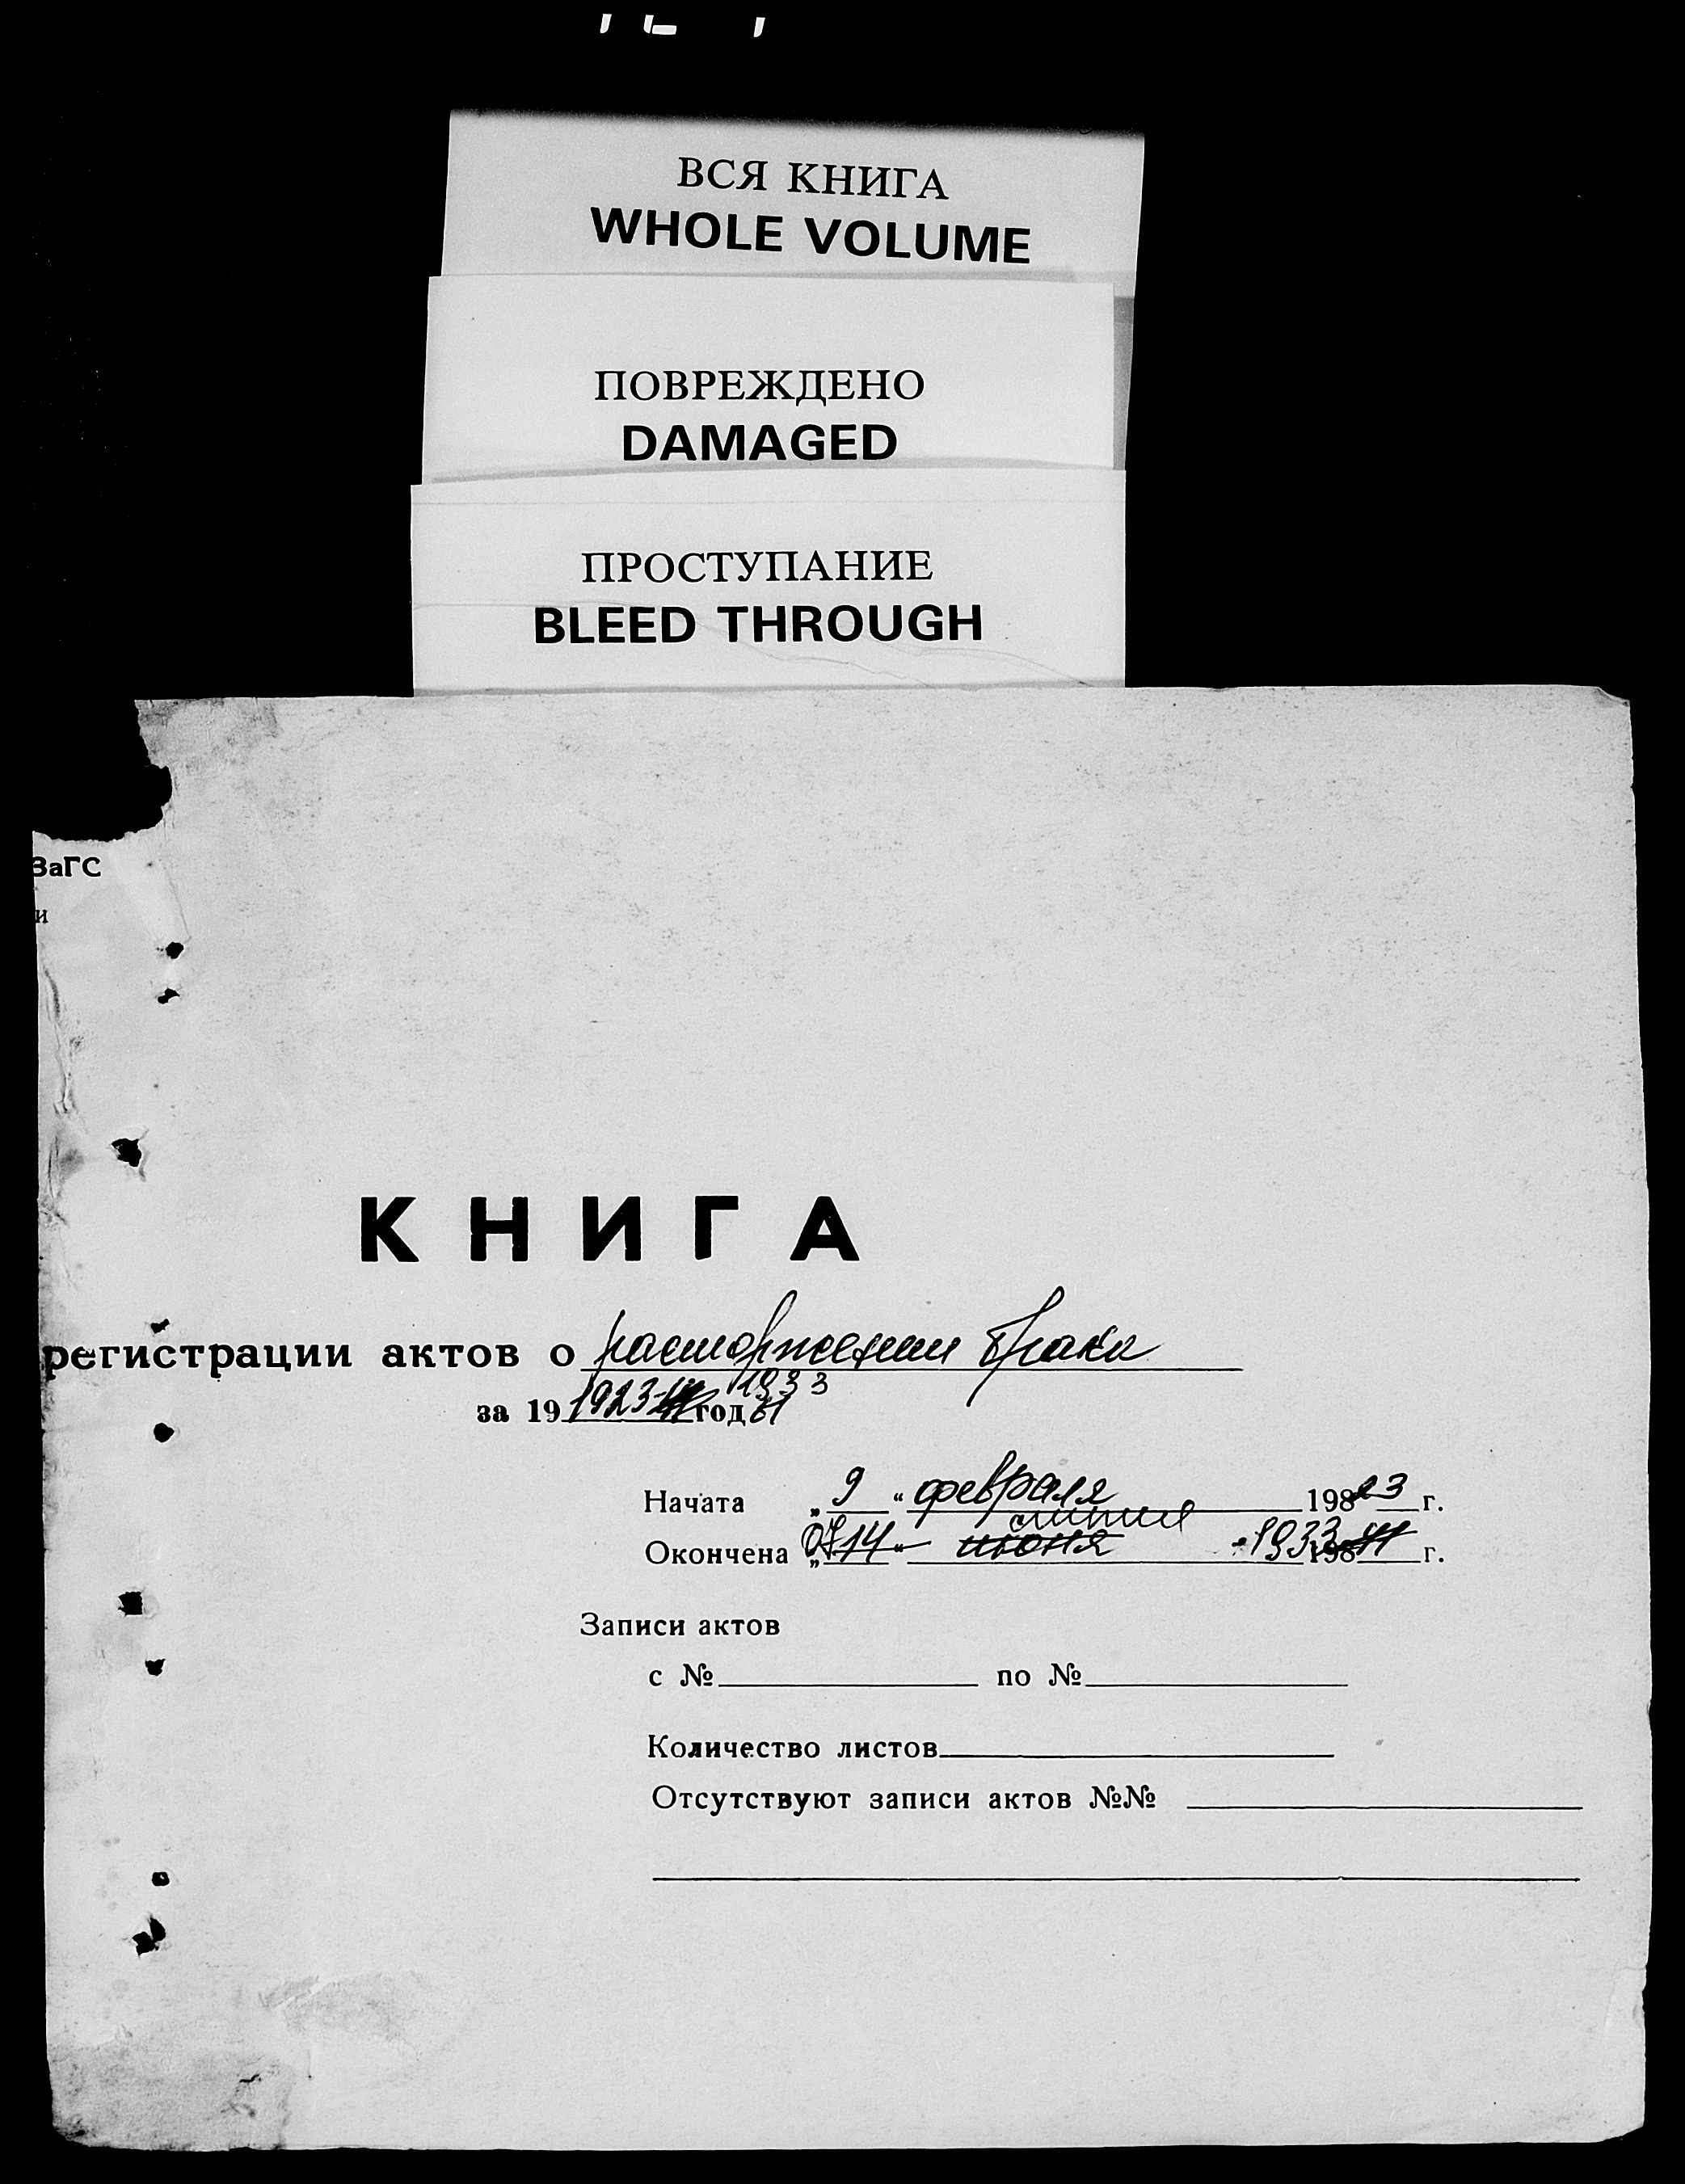 ВСЯ КНИГА
WHOLE VOLUME
ПОВРЕЖДЕНО
DAMAGED
ПРОСТУПАНИЕ
BLEED THROUGH
ЗаГС
и
КНИГА
регистрации актов о расторжении брака
за 19 1923- 1933 год
Начата „ 9 “ февраля 198 23 г.
Окончена „ 14 “ июня 1933 198 41 г.
Записи актов
с № по №
Количество листов
Отсутствуют записи актов №№